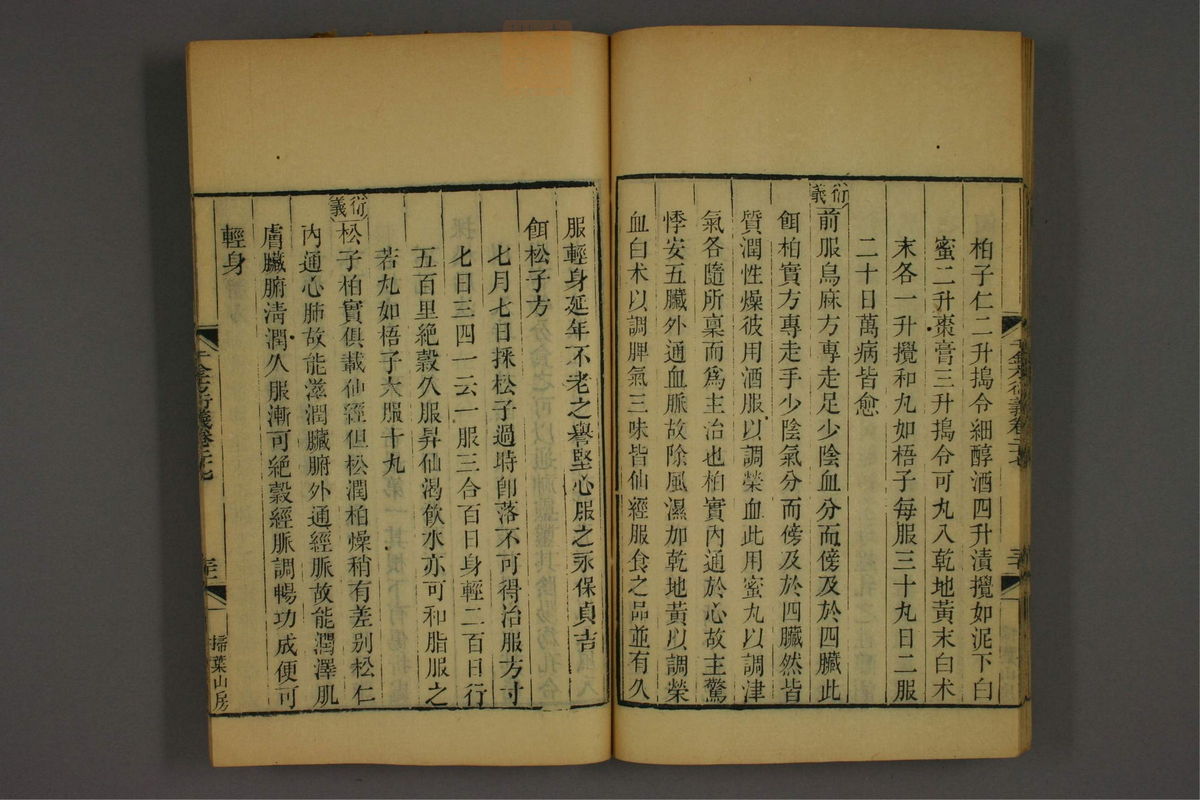 柏子仁二升搗令細醇酒四升漬攪如泥下白
蜜二升棗膏三升搗令可丸入乾地黃末白朮
末各一升攪和丸如梧子每服三十丸日二服
二十日萬病皆愈
衍義
前服烏麻方專走足少陰血分而傍及於四臟此
餌柏實方專走手少陰氣分而傍及於四臟然皆
質潤性燥彼用酒服以調榮血此用蜜丸以調津
氣各隨所稟而爲主治也柏實內通於心故主驚
悸安五臟外通血脈故除風濕加乾地黃以調榮
血白朮以調脾氣三味皆仙經服食之品並有久
服輕身延年不老之譽堅心服之永保貞吉
餌松子方
七月七日採松子過時卽落不可得治服方寸
七日三四一云一服三合百日身輕二百日行
五百里絶穀久服昇仙渴飮水亦可和脂服之
若丸如梧子大服十丸
衍義
松子柏實俱載仙經但松潤柏燥稍有差别松仁
內通心肺故能滋潤臟腑外通經脈故能潤澤肌
膚臟腑淸潤久服漸可絶穀經脈調暢功成便可
輕身
千金方衍義卷二十七
掃葉山房